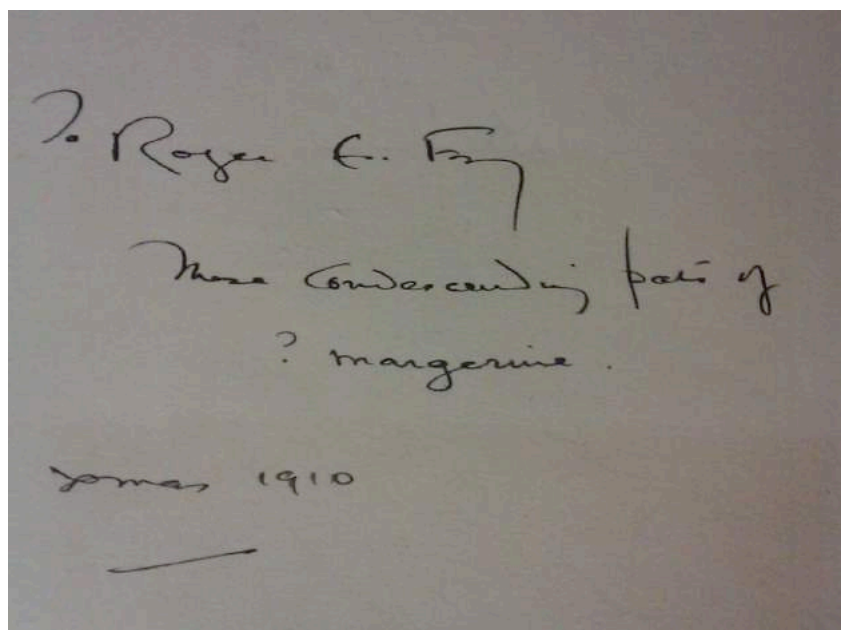 ? Roger E. Fry
These Condescending pats of
? margerine.
Xmas 1910